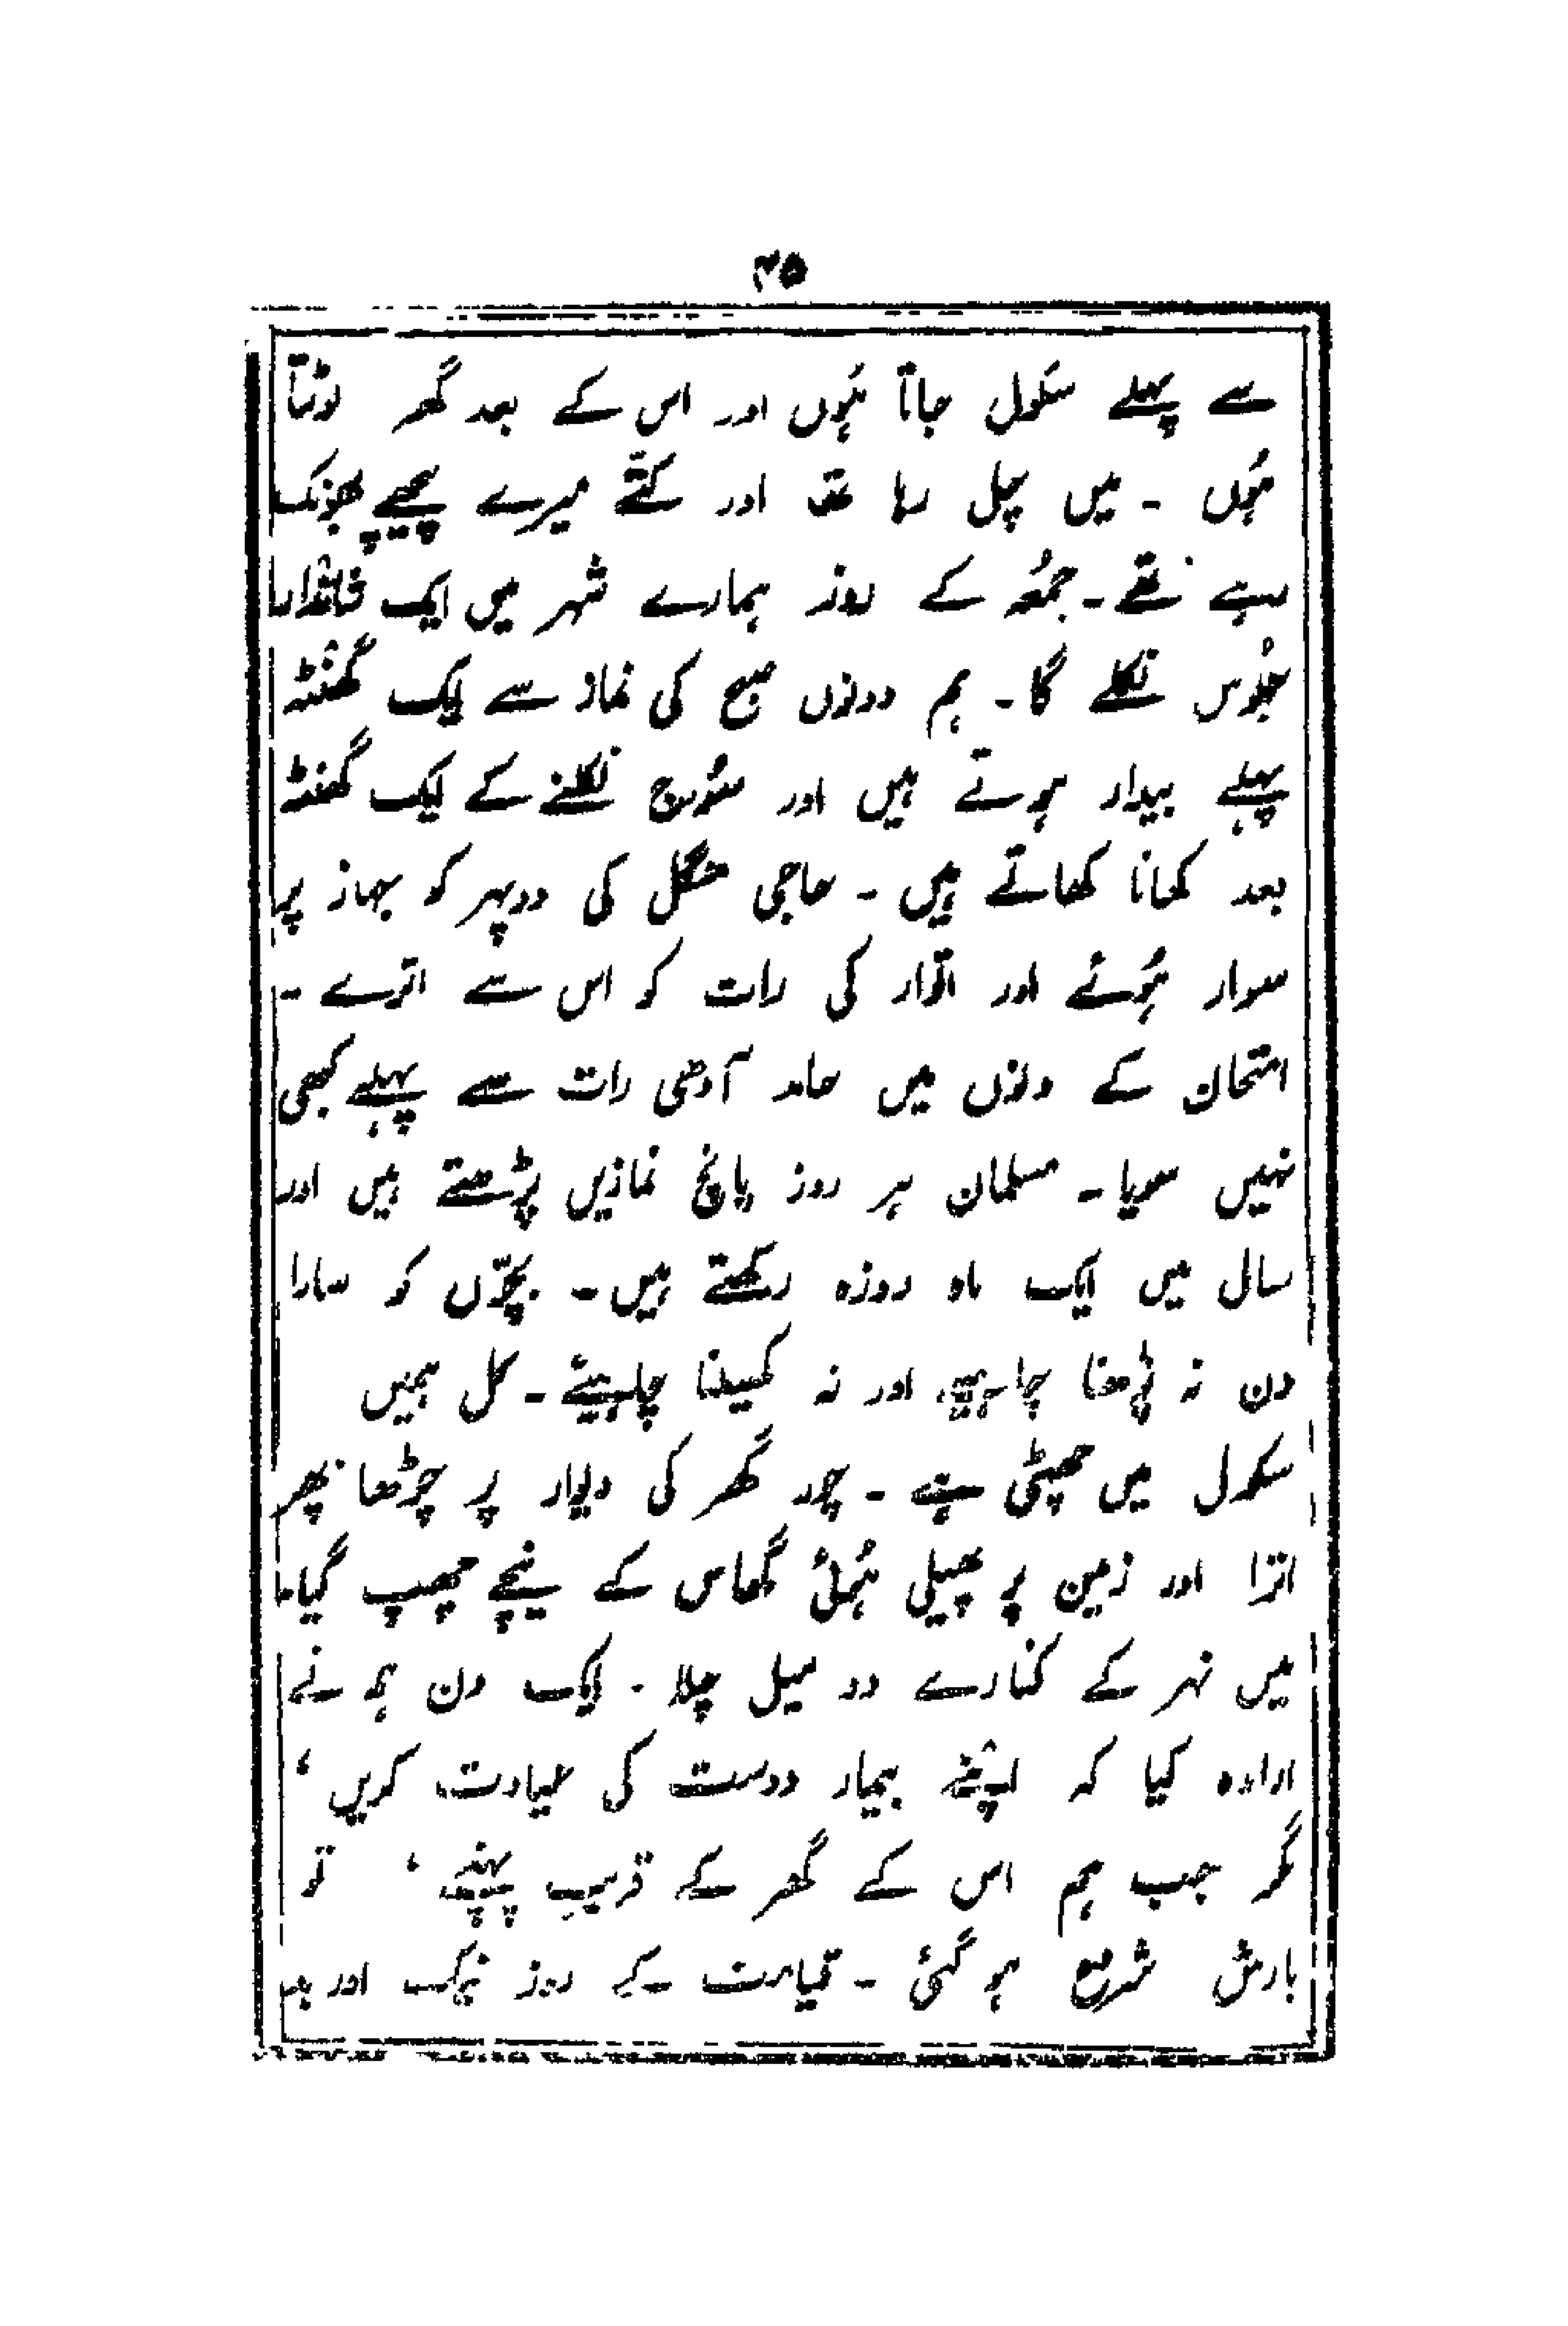 ۳۵
سے پہلے سکول جاتا ہُوں اور اس کے بعد گھر لوٹتا
ہُوں ۔ میں چل رہا تھا اور کتّے میرے پیچھے بھونک
رہے تھے ۔ جمُعہ کے روز ہمارے شہر میں ایک شاندار
جلُوس نکلے گا ۔ ہم دونوں صبح کی نماز سے ایک گھنٹہ
پہلے بیدار ہوتے ہیں اور سُورج نکلنے کے ایک گھنٹہ
بعد کھانا کھاتے ہیں ۔ حاجی منگل کی دوپہر کو جہاز پر
سوار ہُوئے اور اتوار کی رات کو اس سے اترے ۔
امتحان کے دنوں میں حامد آدھی رات سے پہلے کبھی
نہیں سویا ۔ مسلمان ہر روز پانچ نمازیں پڑھتے ہیں اور
سال میں ایک ماہ روزہ رکھتے ہیں ۔ بچّوں کو سارا
دن نہ پڑھنا چاہیے اور نہ کھیلنا چاہیئے ۔ کل ہمیں
سکول میں چھٹی ہے ۔ چور گھر کی دیوار پر چڑھا پھر
اترا اور زمین پر پھیلی ہُوئی گھاس کے نیچے چھپ گیا ۔
میں نہر کے کنارے دو میل چلا ۔ ایک دن ہم نے
ارادہ کیا کہ اپنے بیمار دوست کی عیادت کریں ،
مگر جب ہم اس کے گھر کے قریب پہنچے ، تو
بارش شروع ہو گئی ۔ قیامت کے روز نیک اور بد